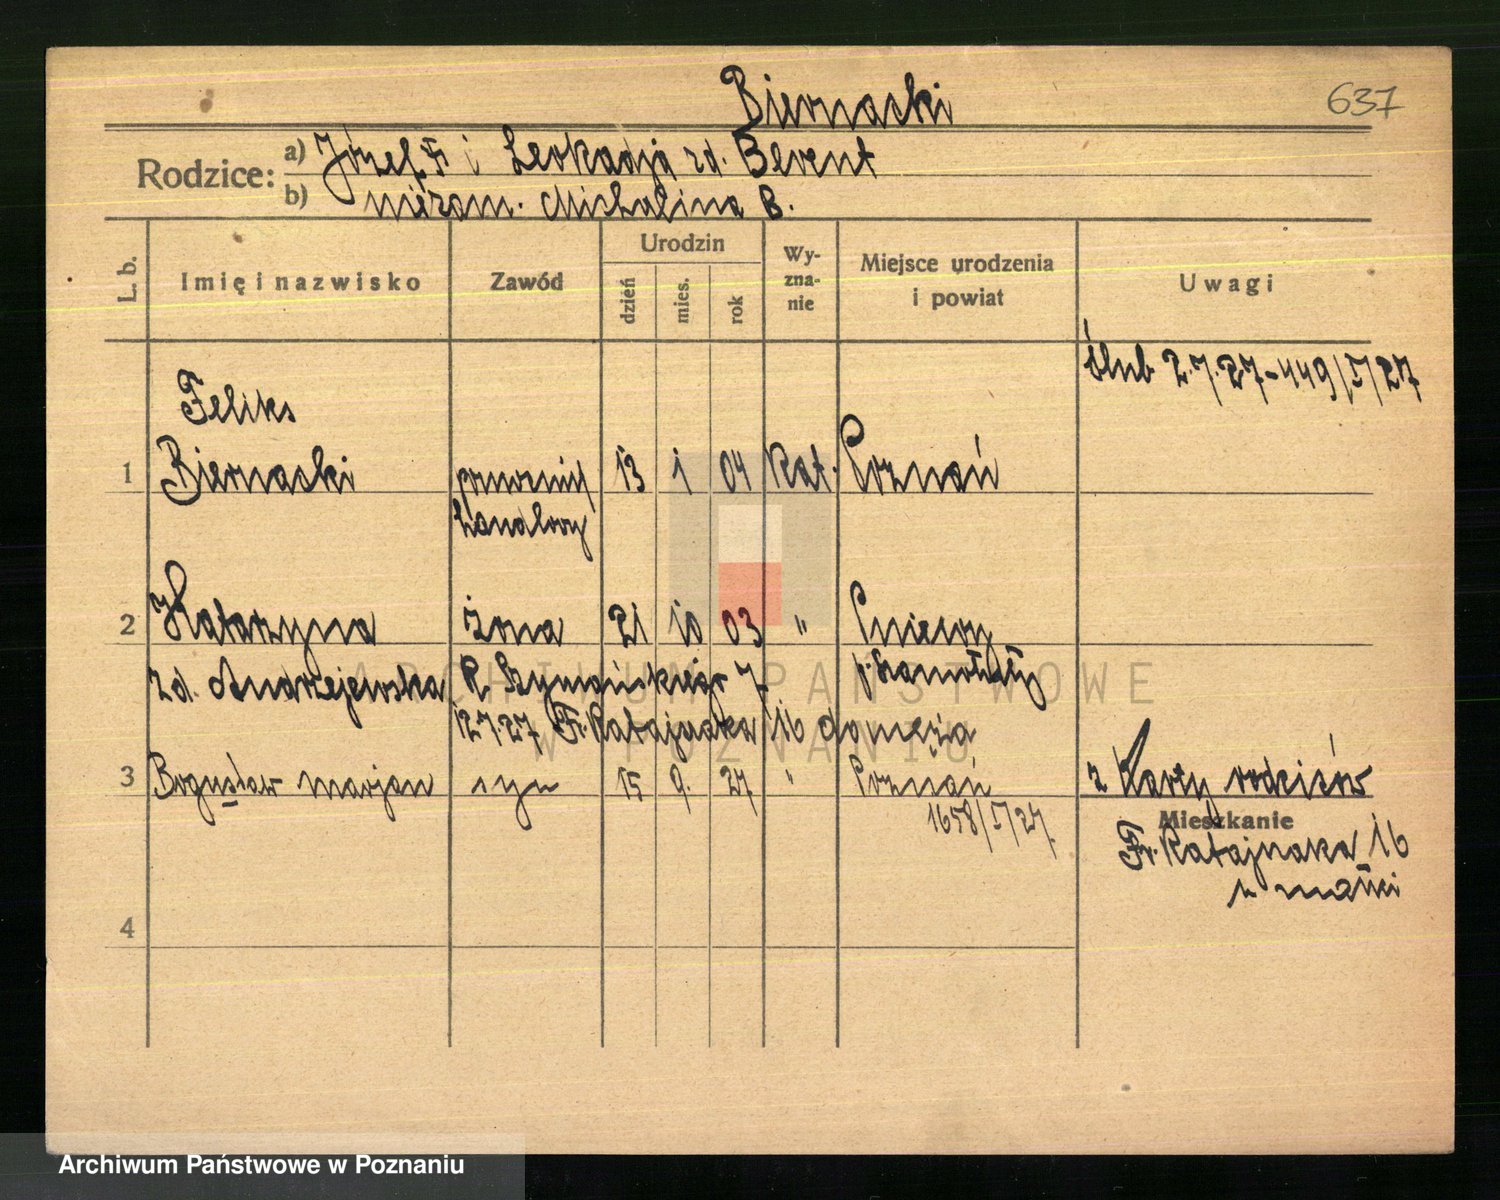 Biernacki
637
Rodzice: a) Józef i Leokadja zd. Berent
b) niezam. Michalina B.
L. b.
Imię i nazwisko
Zawód
Urodzin
dzień
mies.
rok
Wy-
zna-
nie
Miejsce urodzenia
i powiat
Uwagi
ślub 2.7.27-449/I/27
Feliks
1 Biernacki pomocnik 13 1 04 kat. Poznań
handlowy
2 Katarzyna żona 21 10 03 " Pniewy
zd. Andrzejewska R. Szymańskiego 7 p. Szamotuły
12.7.27 Fr. Ratajczaka 16 do męża
3 Bogusław Marjan syn 15 9. 27 " Poznań z karty rodziców
1658/I/27.
Mieszkanie
Fr. Ratajczaka 16
u matki
4
ARCHIWUM PAŃSTWOWE
W POZNANIU
Archiwum Państwowe w Poznaniu